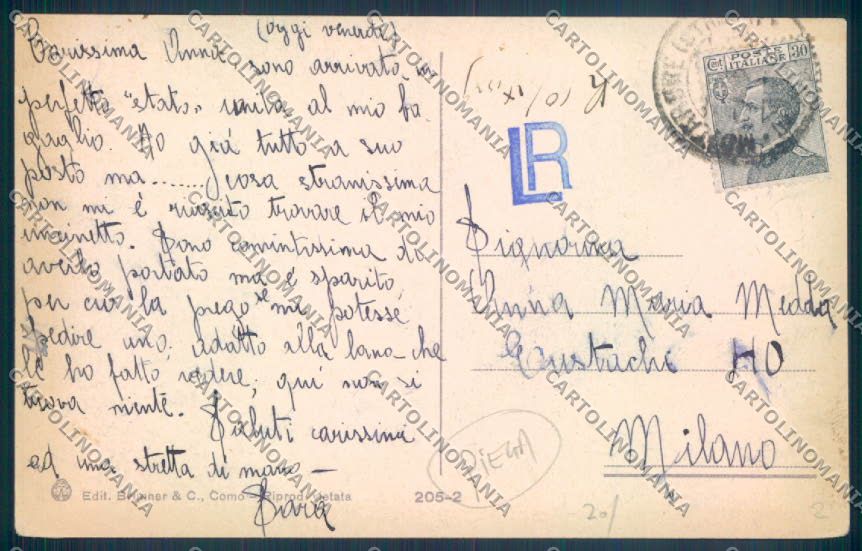 (oggi venerdì)
Carissima Anna
sono arrivata in
perfetto "stato" unita al mio ba
gaglio. Ho già tutto a suo
posto ma....... cosa stranissima
non mi è riuscito trovare il mio
uncinetto. Sono convintissima di
averlo portato ma è sparito
per cui la prego se mi potesse
spedire uno adatto alla lana che
le ho fatto vedere, qui non si
trova niente. Saluti carissimi
ed una stretta di mano —
Sara
Edit. Brunner & C., Como - Riprod. vietata
205-2
LR
POSTE ITALIANE
Cent 30
Signorina
Anna Maria Medda
Eustachi 40
Milano
PIEGA
20/
2
CARTOLINOMANIA